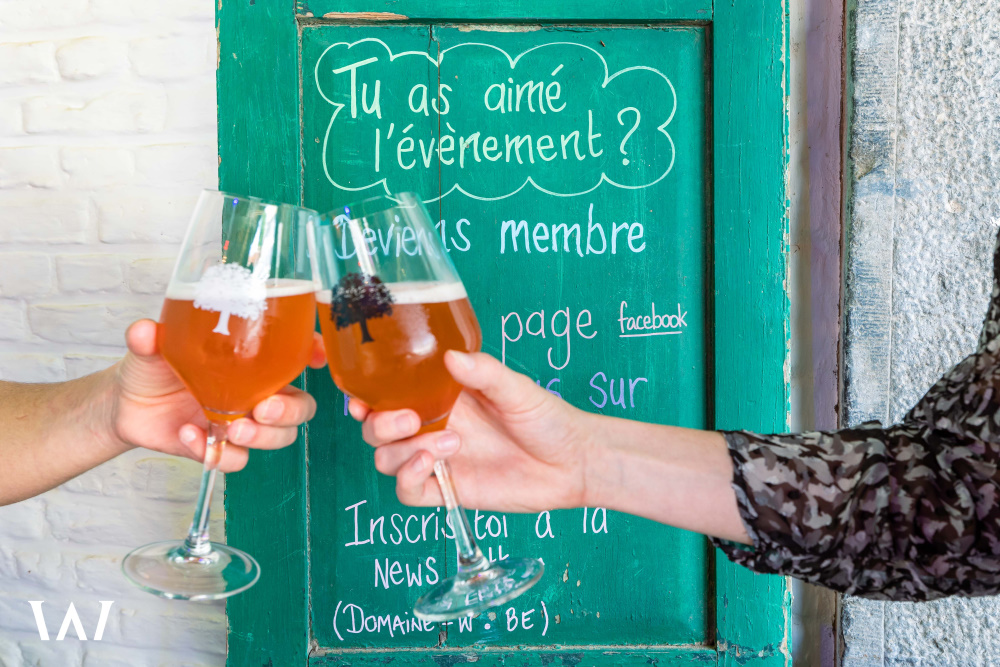 Tu as aimé
l'évènement ?
Deviens membre
page facebook
sur
Inscris toi à la
News
(DOMAINE-W.BE)
W